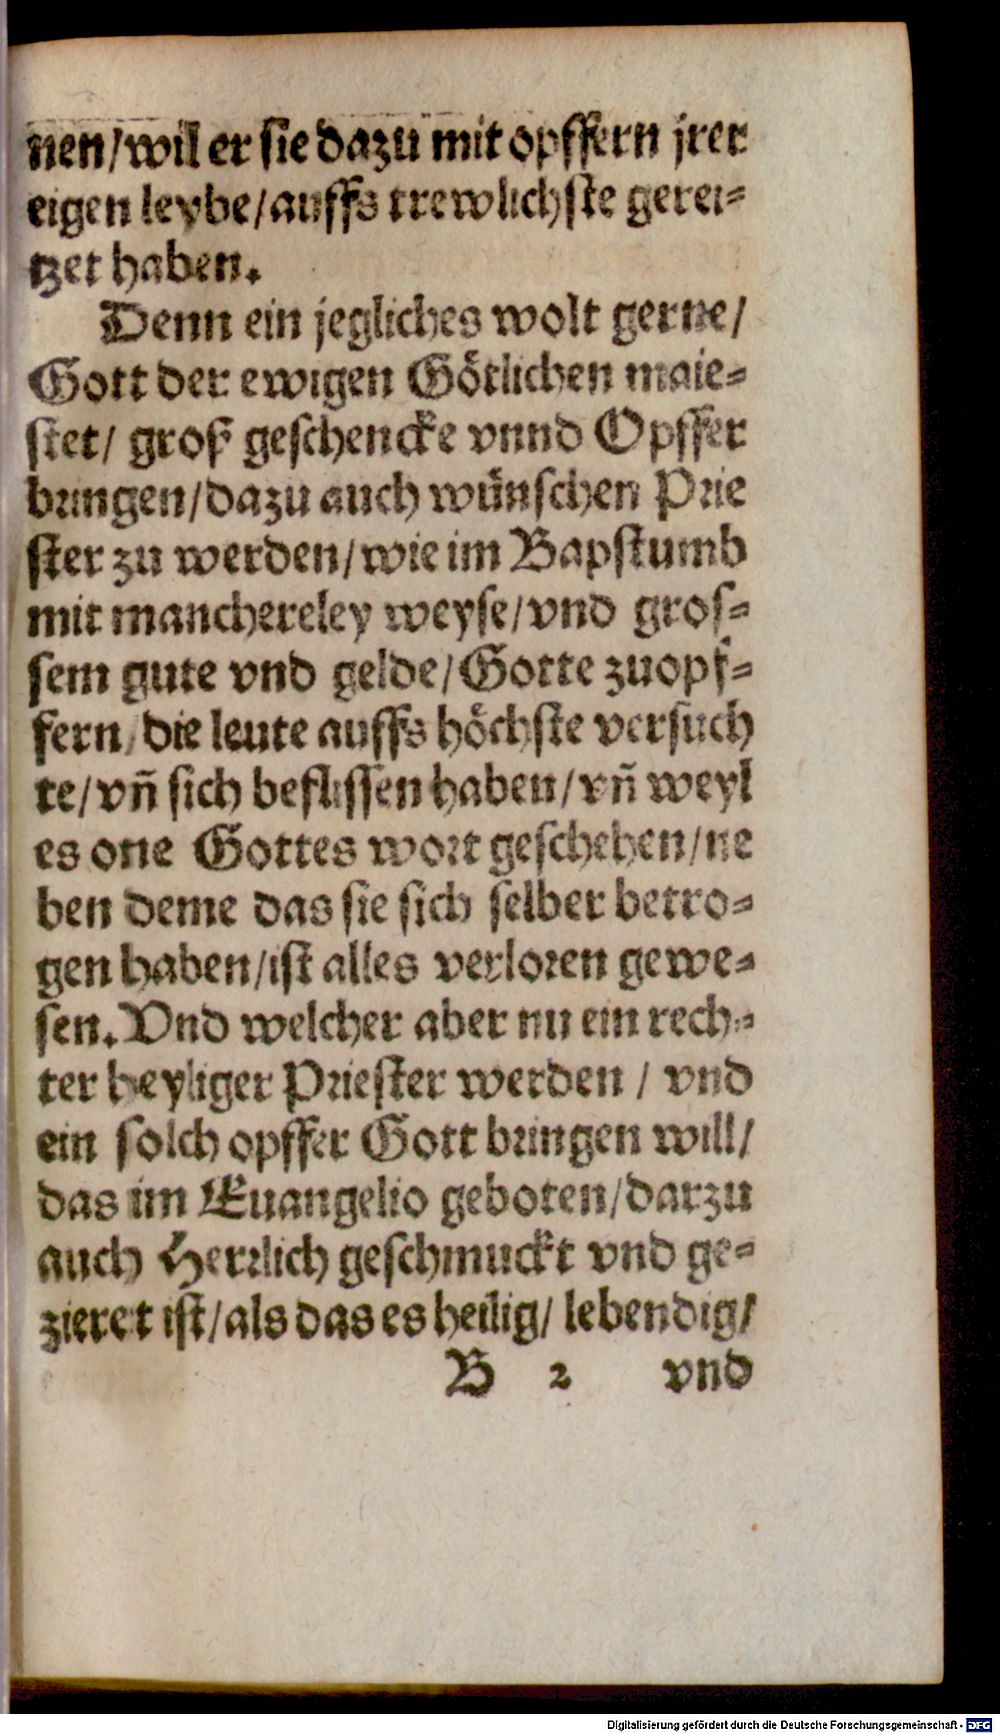 nen/wil er sie dazu mit opffern jrer
eigen leybe/auffs trewlichste gerei=
tzet haben.
Denn ein jegliches wolt gerne/
Gott der ewigen Götlichen maie=
stet/ groß geschencke vnnd Opffer
bringen/dazu auch wünschen Prie
ster zu werden/wie im Bapstumb
mit manchereley weyse/vnd gros=
sem gute vnd gelde/Gotte zuopf=
fern/die leute auffs höchste versuch
te/vñ sich beflissen haben/vñ weyl
es one Gottes wort geschehen/ne
ben deme das sie sich selber betro=
gen haben/ist alles verloren gewe=
sen. Vnd welcher aber nu ein rech=
ter heyliger Priester werden / vnd
ein solch opffer Gott bringen will/
das im Euangelio geboten/darzu
auch Herrlich geschmuckt vnd ge=
zieret ist/als das es heilig/ lebendig/
B 2 vnd
Digitalisierung gefördert durch die Deutsche Forschungsgemeinschaft - DFG